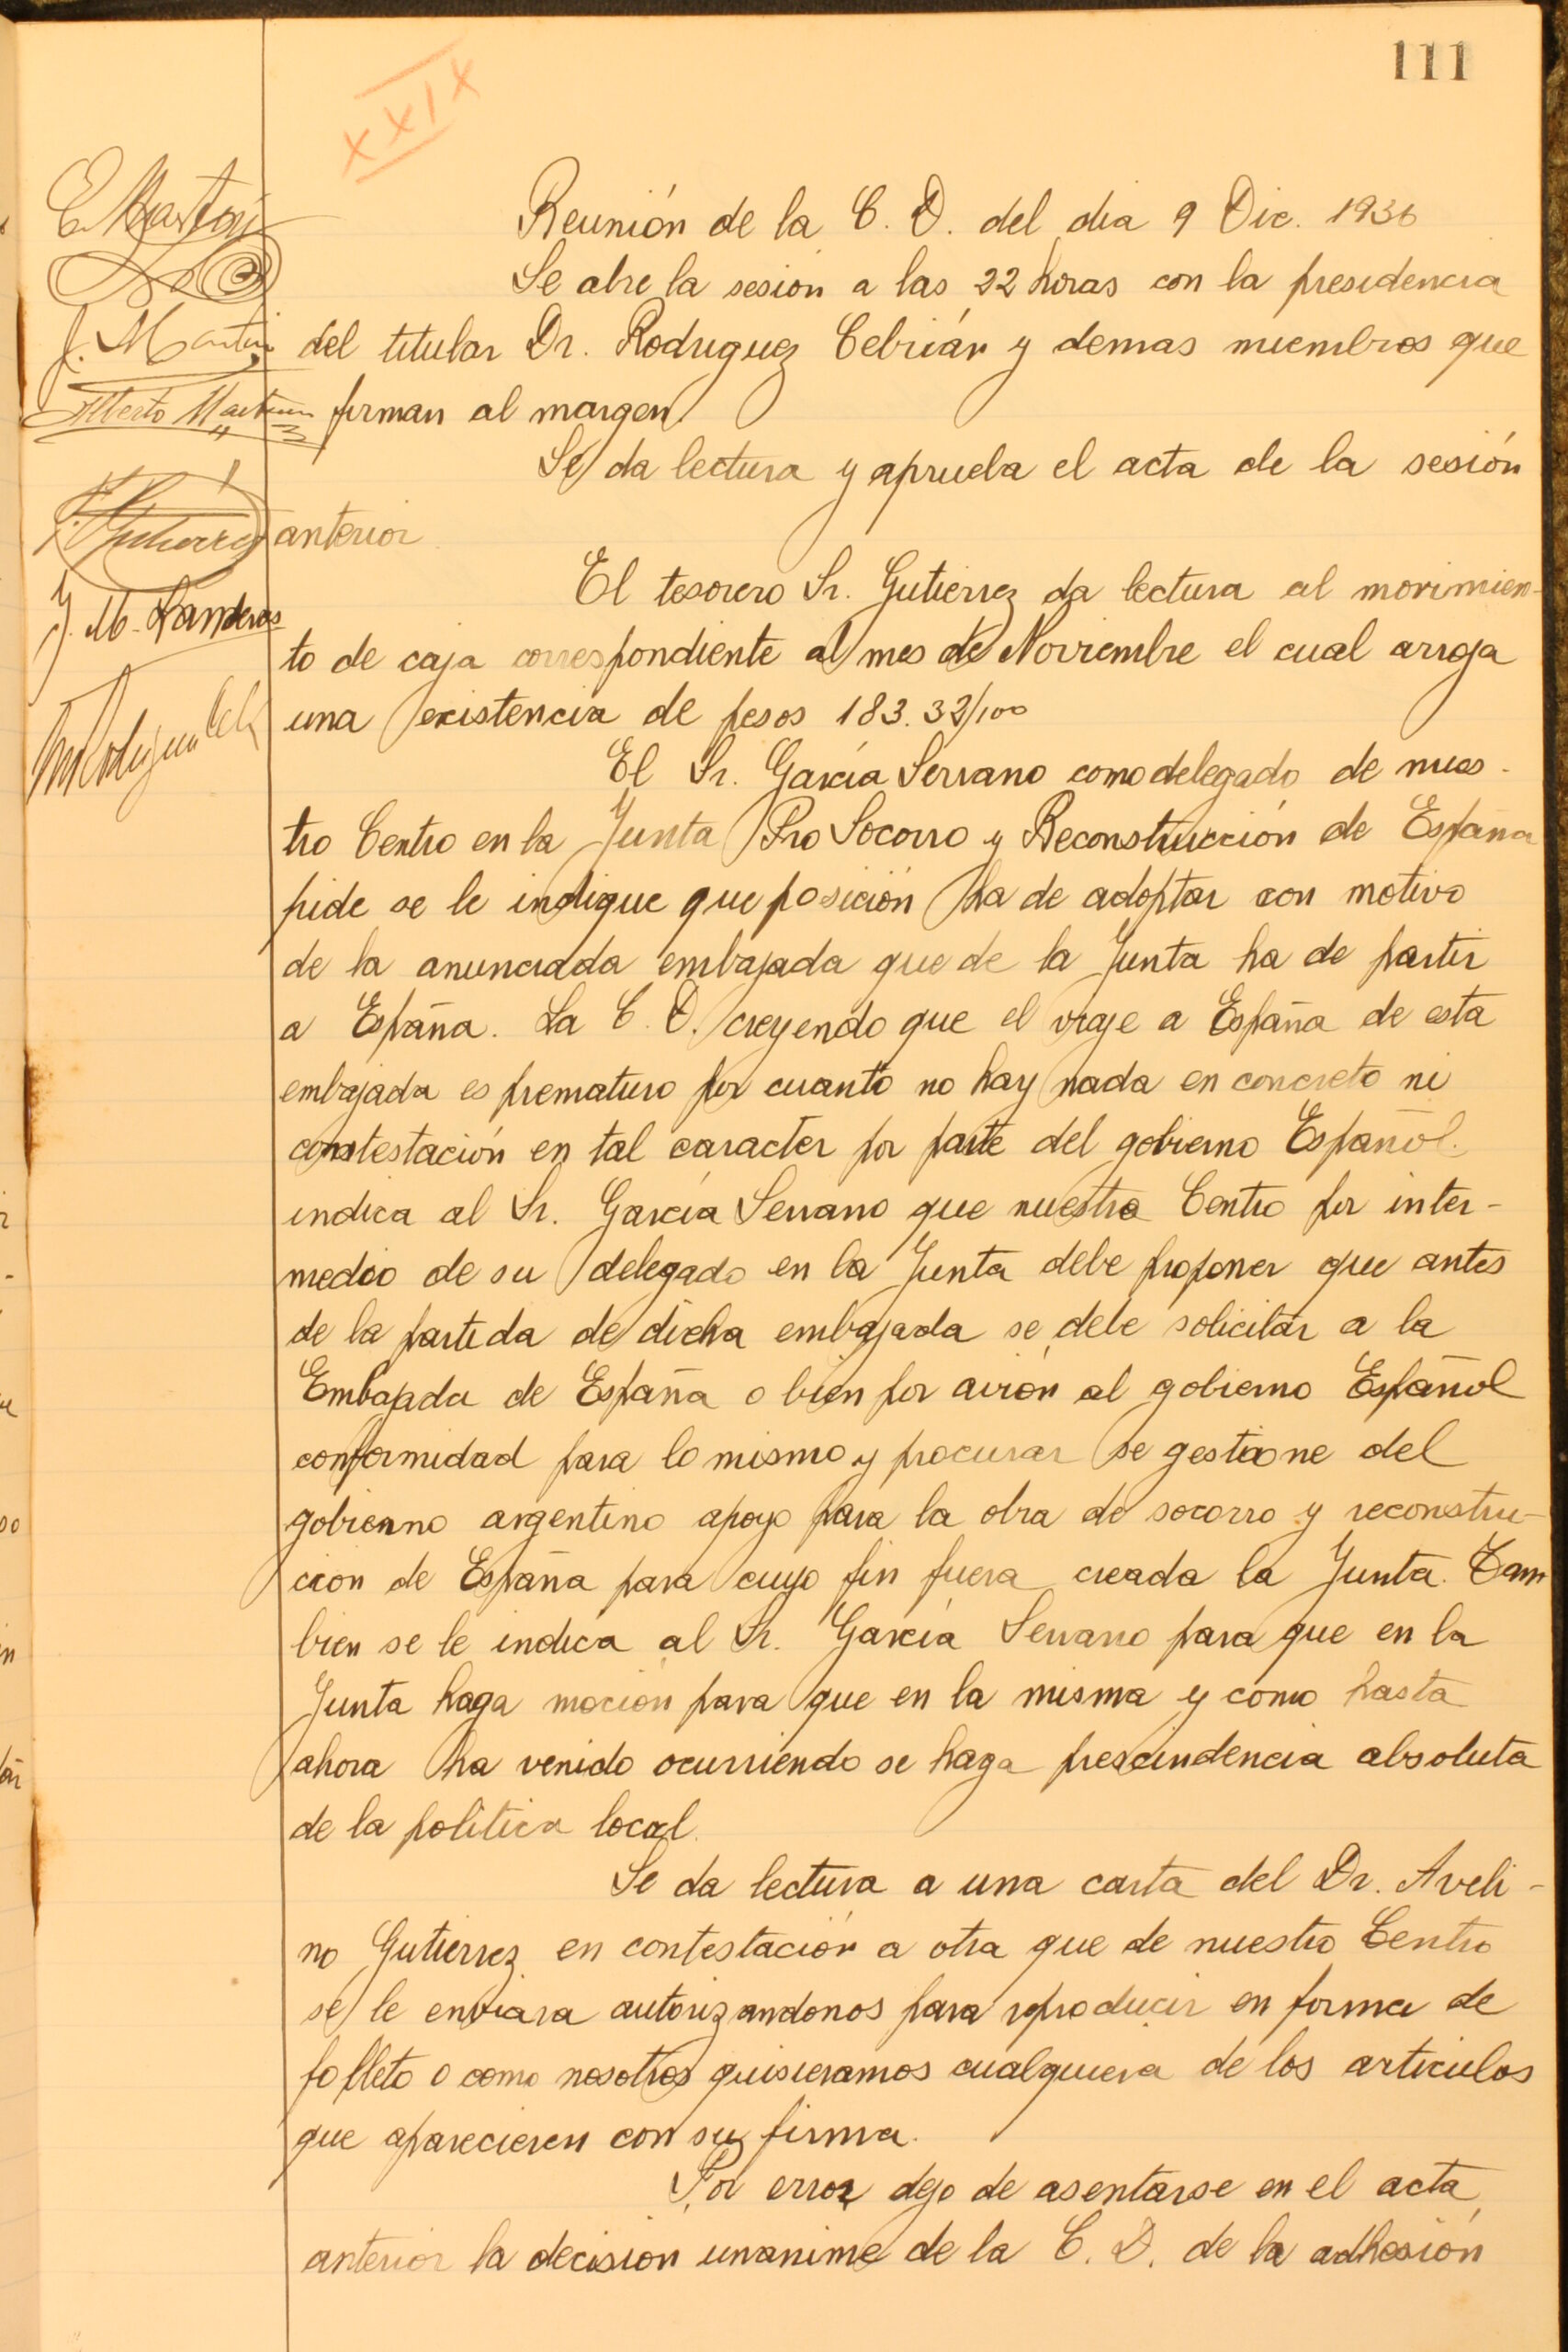 111
XXIX
E. Martin
J. Martin
Alberto Martin
F. Gutierrez
J. M. Landeras
Reunión de la C. D. del dia 9 Dic. 1936
Se abre la sesion a las 22 horas con la presidencia
del titular Dr. Rodriguez Cebrián y demas miembros que
firman al margen
Se da lectura y aprueba el acta de la sesión
anterior.
El tesorero Sr. Gutierrez da lectura al movimien-
to de caja correspondiente al mes de Noviembre el cual arroja
una existencia de pesos 183.32/100
El Sr. García Serrano como delegado de nues-
tro Centro en la Junta Pro Socorro y Reconstrucción de España
pide se le indique que posición ha de adoptar con motivo
de la anunciada embajada que de la Junta ha de partir
a España. La C. D. creyendo que el viaje a España de esta
embajada es prematuro por cuanto no hay nada en concreto ni
contestación en tal caracter por parte del gobierno Español.
indica al Sr. García Serrano que nuestro Centro por inter-
medio de su delegado en la Junta debe proponer que antes
de la partida de dicha embajada se debe solicitar a la
Embajada de España o bien por avión al gobierno Español
conformidad para lo mismo y procurar se gestione del
gobierno argentino apoyo para la obra de socorro y reconstru-
cion de España para cuyo fin fuera creada la Junta. Tam
bien se le indica al Sr. García Serrano para que en la
Junta haga moción para que en la misma y como hasta
ahora ha venido ocurriendo se haga prescindencia absoluta
de la politica local.
Se da lectura a una carta del Dr. Aveli-
no Gutierrez en contestación a otra que de nuestro Centro
se le enviara autorizandonos para reproducir en forma de
folleto o como nosotros quisieramos cualquiera de los articulos
que aparecieren con su firma.
Por error dejo de asentarse en el acta
anterior la decision unanime de la C. D. de la adhesión